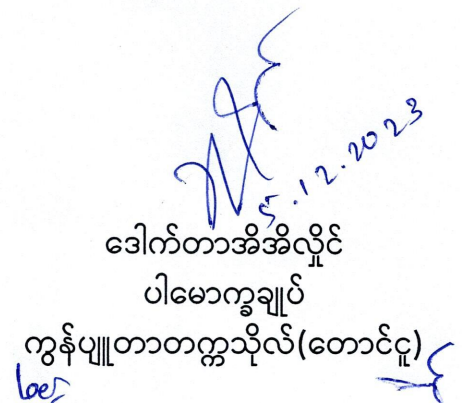 5.12.2023
ဒေါက်တာအိအိလှိုင်
ပါမောက္ခချုပ်
ကွန်ပျူတာတက္ကသိုလ်(တောင်ငူ)